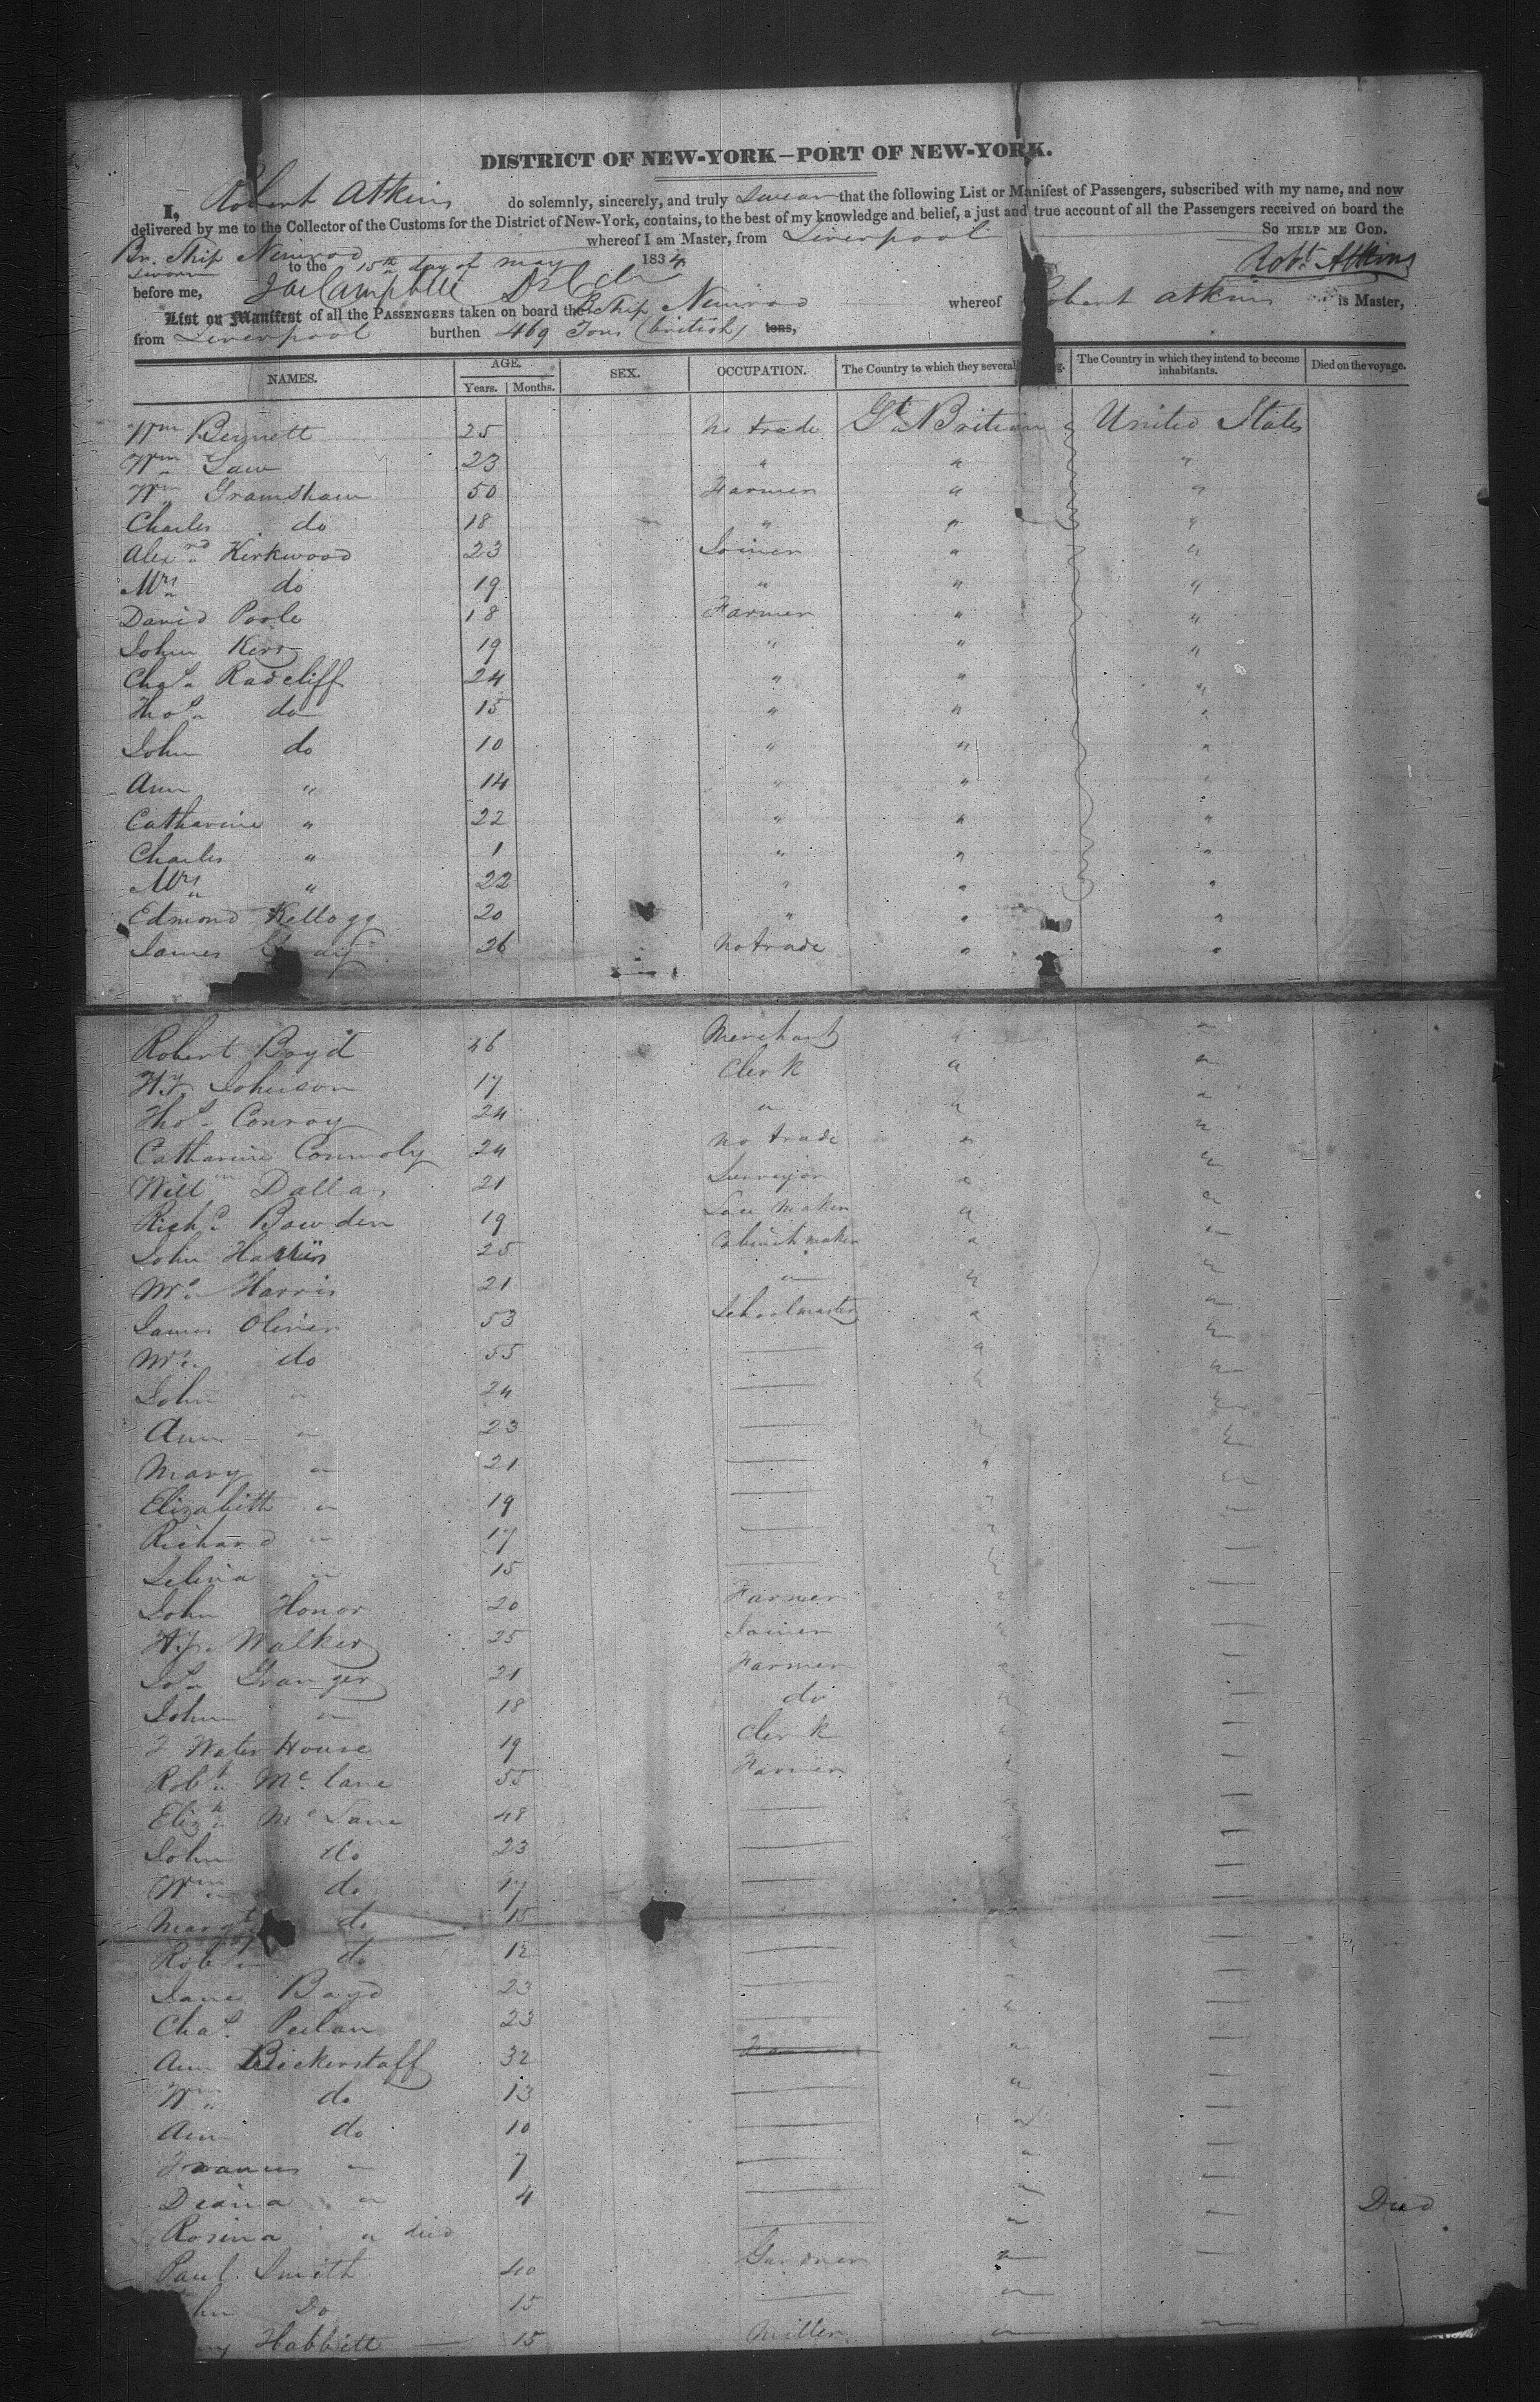 DISTRICT OF NEW-YORK—PORT OF NEW-YORK.
I, Robert Atkins do solemnly, sincerely, and truly swear that the following List or Manifest of Passengers, subscribed with my name, and now
delivered by me to the Collector of the Customs for the District of New-York, contains, to the best of my knowledge and belief, a just and true account of all the Passengers received on board the
Br. Ship Nimrod whereof I am Master, from Liverpool So help me God.
Sworn to the 15th day of may 1834 Robt. Atkins
before me, Jas Campbell
List or Manifest of all the Passengers taken on board the B Ship Nimrod whereof Robert Atkins is Master,
from Liverpool burthen 469 Tons (british) tons,
NAMES. AGE. Years. Months. SEX. OCCUPATION. The Country to which they several g. The Country in which they intend to become inhabitants. Died on the voyage.
Wm Bennett 25 no trade Gt Britian United States
Wm Law 23 " " "
Wm Gramshaw 50 Farmer " "
Charles do 18 " " "
Alexrd Kirkwood 23 Joiner " "
Mrs do 19 " " "
David Poole 18 Farmer " "
John Kerr 19 " " "
Chas Radcliff 24 " " "
Thos do 15 " " "
John do 10 " " "
Ann " 14 " " "
Catharine " 22 " " "
Charles " 1 " " "
Mrs " 22 " " "
Edmond Kellogg 20 " " "
James 26 no trade " "
Robert Boyd 46 Merchant " "
Hy Johnson 17 Clerk " "
Thos Conroy 24 " " "
Catharine Connoly 24 no trade " "
Willm Dallas 21 Surveyor " "
Richd Bowden 19 Lace Maker " "
John Harris 25 Cabinet maker " "
Mrs Harris 21 " " "
James Oliver 53 Schoolmaster " "
Mrs do 55 — " "
John " 24 — " "
Ann " 23 — " "
Mary " 21 — " "
Elizabeth " 19 — " "
Richard " 17 — " —
Selina " 15 — " —
John Honor 20 Farmer " —
Hy Walker 25 Joiner " —
Jos Granger 21 Farmer " —
John " 18 do " —
J Water House 19 Clerk " —
Robt Mc Lane 55 Farmer " —
Elizh Mc Lane 48 — " —
John do 23 — " —
Wm do 17 — " —
Margt do 15 " —
Robt do 12 — " —
Jane Boyd 23 — " —
Chas. 23 — " —
Ann Bickerstaff 32 Farmer " —
Wm do 13 — " —
Ann do 10 — " —
Frances " 7 — " —
Diana " 4 — " —
Rosina " died — " — Died
Paul Smith 40 Gardner " —
hn Do 15 — "
ry Habbitt — 15 Miller " —